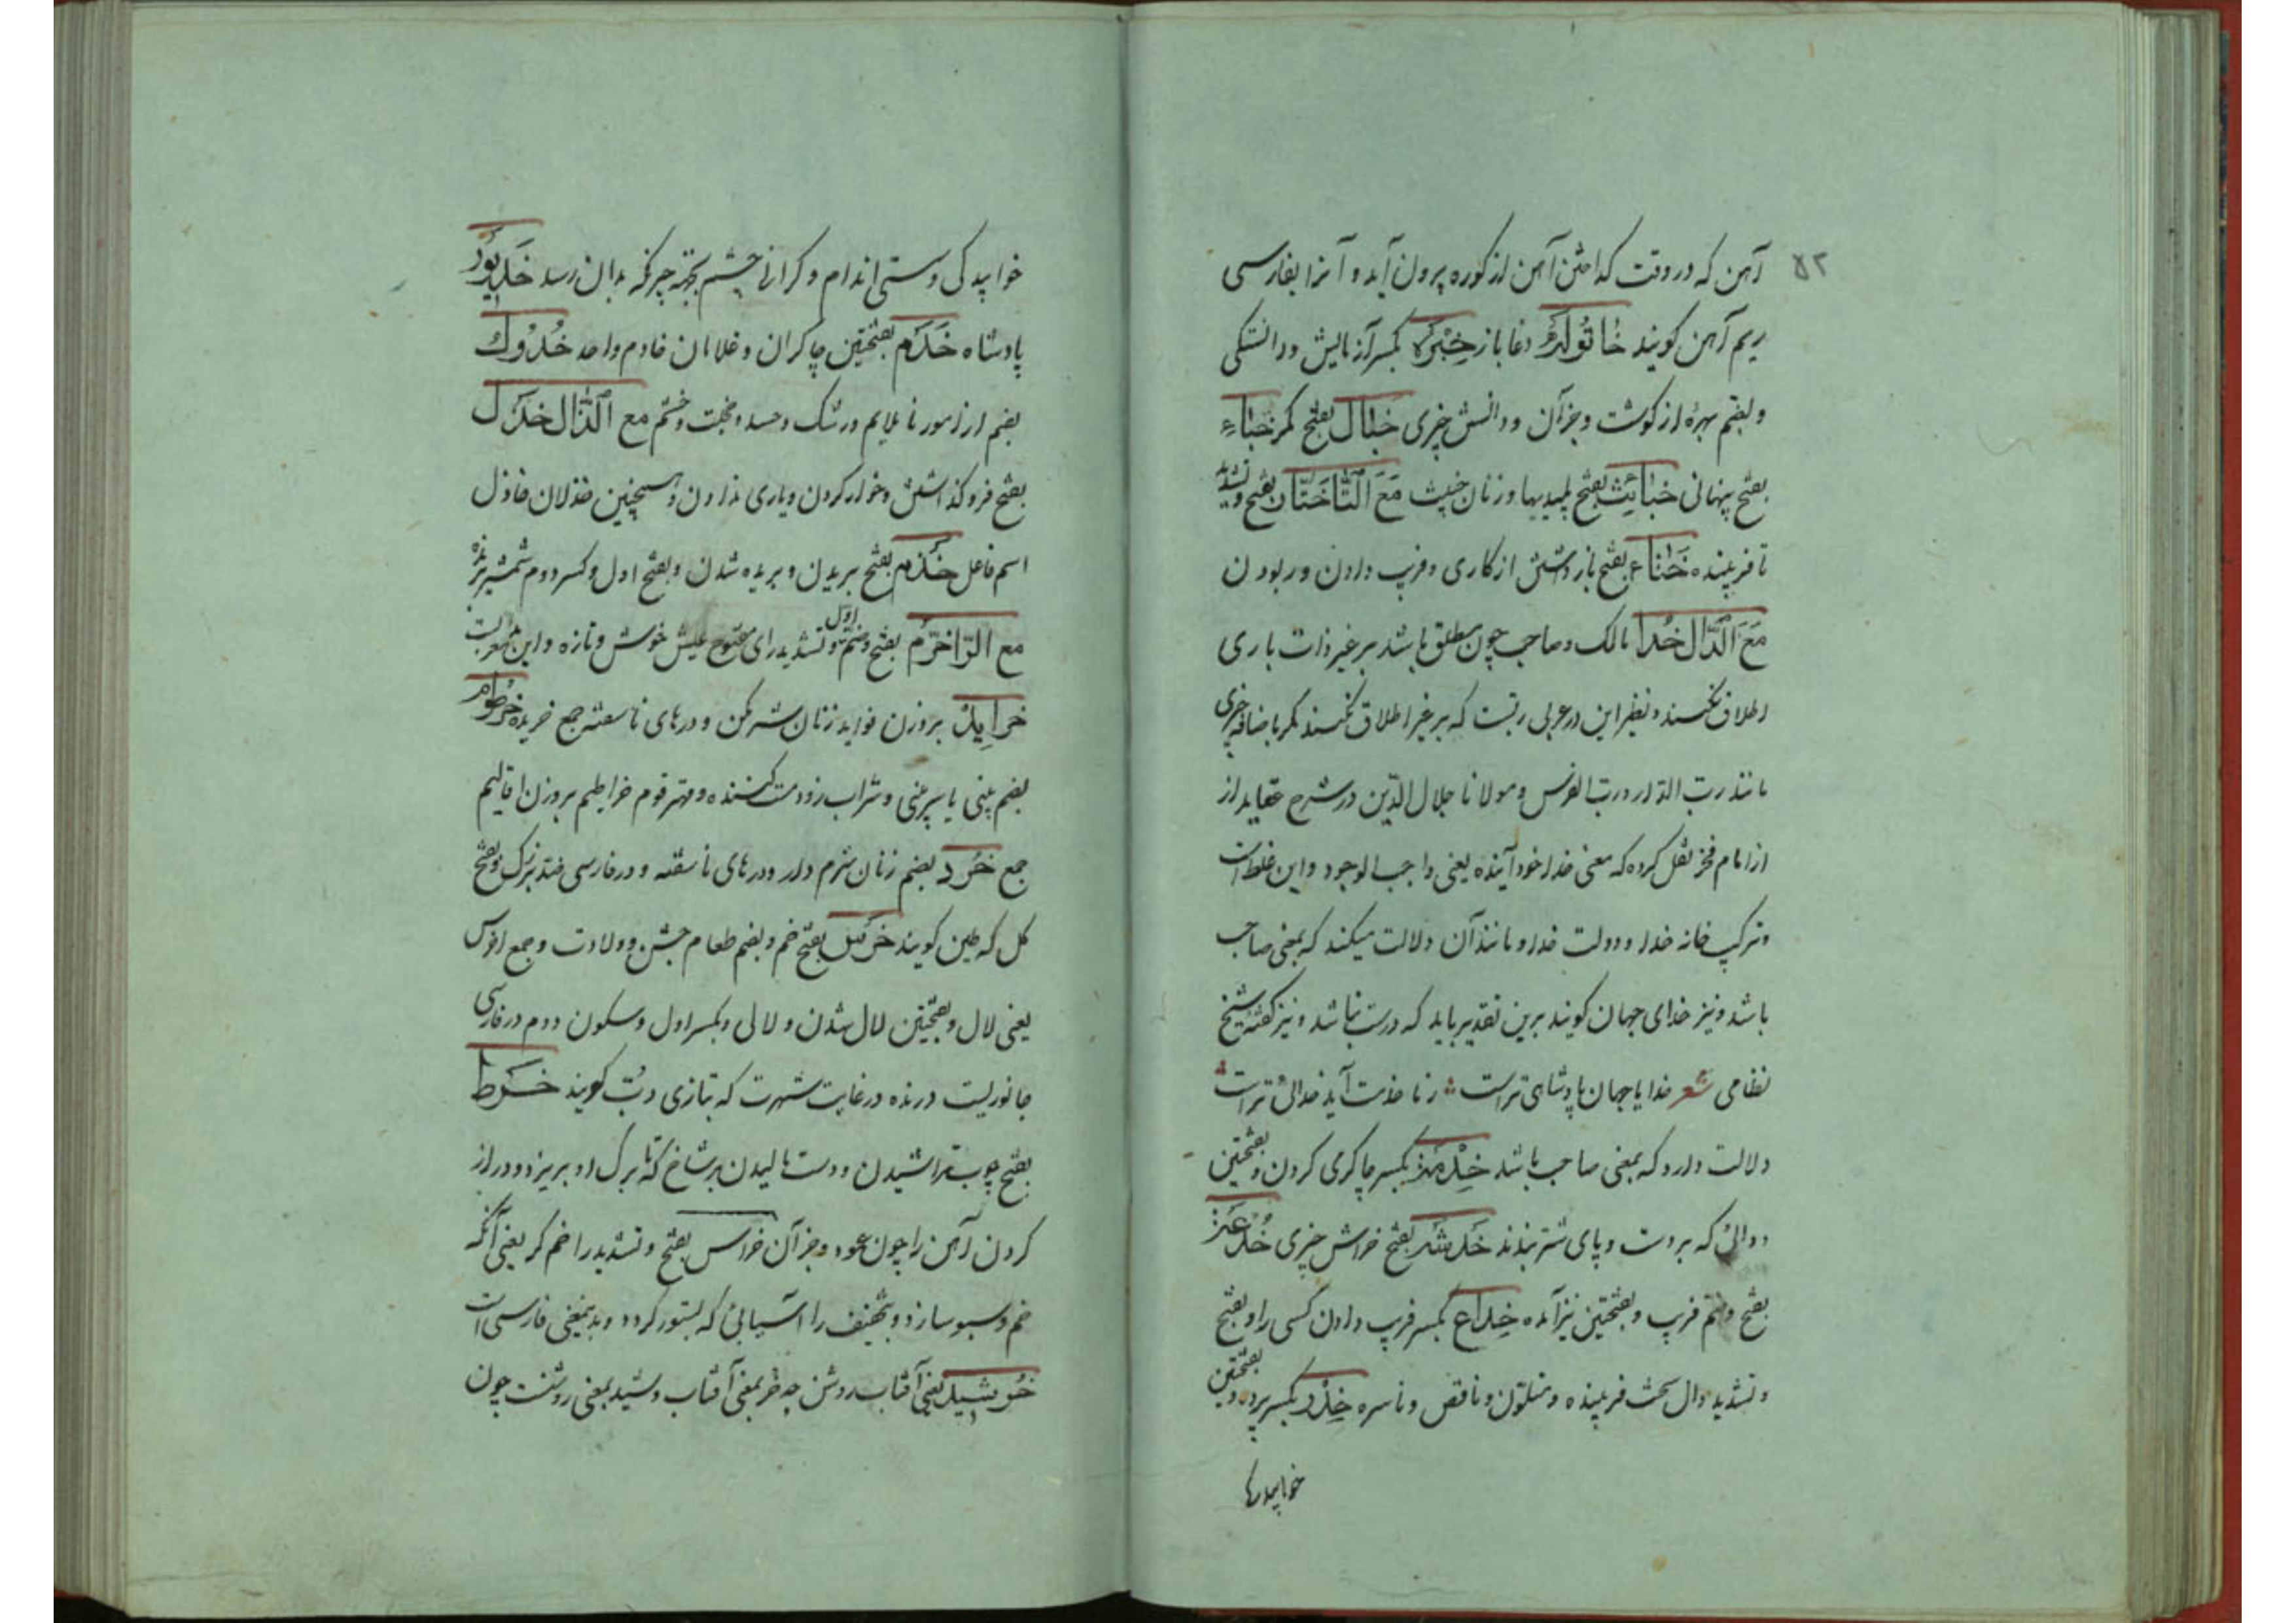 ۵۲
آهن که در وقت کداختن آهن از کوره بیرون آید و آنرا بفارسی
ریم آهن کویند خاتوله دغا باز خبره بکسر آزمایش و دانستکی
و بضم بهره از کوشت و جز آن و دانستن چیزی خبال بفتح خباء
بفتح پنهانی خبائث بفتح پلیدیها و زنان خبیث مَعَ التّا خَتّان بفتح و تشدید
تا فریبنده خَتاء بفتح بازداشتن از کاری و فریب دادن و ربودن
مَعَ الدَّال خُدا مالک و صاحب چون مطلق باشد بر غیر ذات باری
اطلاق نکنند و نظیر این در عربی ربّست که بر غیر اطلاق نکنند مکر باضافه چیزی
مانند ربّ الدّار و ربّ الفرس و مولانا جلال الدّین در شرح عقاید از
از امام فخر نقل کرده که معنی خدا خود آینده یعنی واجب الوجود و این غلط است
و ترکیب خانه خدا و دولت خدا و مانند آن دلالت میکند که بمعنی صاحب
باشد و نیز خدای جهان کویند برین تقدیر باید که درست نباشد و نیز کفته شیخ
نظامی شعر خدایا جهان پادشاهی تراست ز ما خدمت آید خدائی تراست
دلالت دارد که بمعنی صاحب باشد خِدْمَة بکسر چاکری کردن و بفتحتین
دوالی که بر دست و پای شتر بندند خَدشَه بفتح خراش چیزی خُدعَة
بفتح و ضم فریب و بفتحتین نیز آمده خِداع بکسر فریب دادن کسی را و بفتح
و تشدید دال سخت فریبنده و متلوّن و ناقص و ناسره خِدْر بکسر پرده و بفتحتین
خوابیدکی و سستی اندام و کرانی چشم بجهة چرکی که بدان رسد خَدیوَر
پادشاه خَدَم بفتحتین چاکران و غلامان خادم واحد خُدُوك
بضم از امور نا ملایم و رشک و حسد و خجلت و خشم مع الذّال خذل
بفتح فرو کذاشتن و خوار کردن و یاری ندادن و همچنین خذلان خاذل
اسم فاعل خَذم بفتح بریدن و بریده شدن و بفتح اول و کسر دوم شمشیر برنده
مع الرّا خرّم بفتح و ضم اول و تشدید رای مفتوح عیش خوش و تازه و این معربست
خرایِد بر وزن فواید زنان شرمکن و درهای ناسفته جمع خریده خُرطوم
بضم بینی یا سر بینی و شراب زود مست کننده و مهتر قوم خراطیم بر وزن اقالیم
جمع خُرَد بضم زنان شرم دار و درهای ناسفته و در فارسی ضد بزرک و بفتح
کل که طین کویند خرس بفتح خم و بضم طعام جشن و ولادت و جمع اخرس
یعنی لال و بفتحتین لال شدن و لالی و بکسر اول و سکون دوم در فارسی
جانوریست درنده در غایت شهرت که بتازی دبّ کویند خَرط
بفتح چوب تراشیدن و دست مالیدن بر شاخ که تا برک او بریزد و دراز
کردن آهن را چون عود و جز آن خراس بفتح و تشدید را خم کر یعنی آنکه
خم و سبو سازد و بتخفیف را آسیابی که بستور کردد و بدین معنی فارسی است
خُورشید یعنی آفتاب روشن چه خر بمعنی آفتاب و شید بمعنی روشنست چون